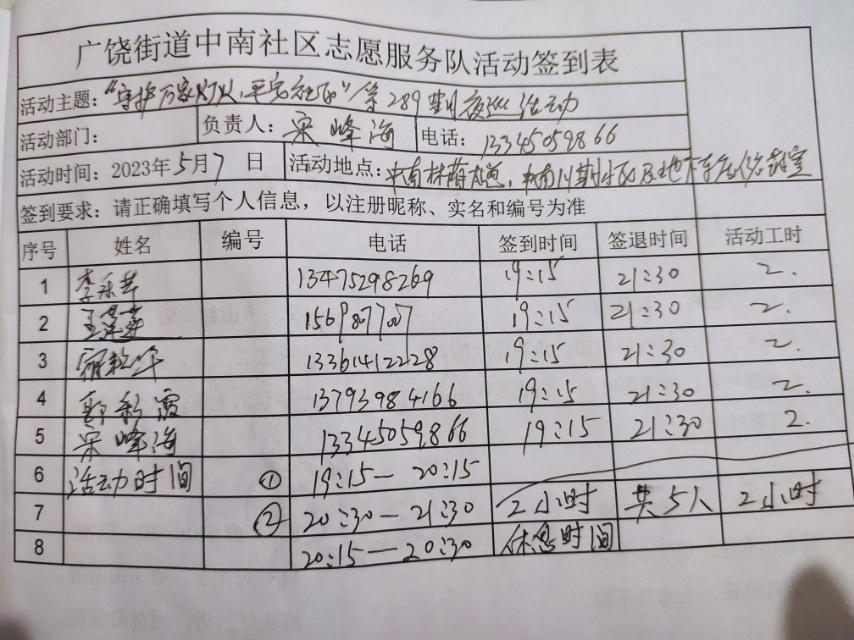 广饶街道中南社区志愿服务队活动签到表
活动主题：“守护万家灯火，平安社区”第289期夜巡活动
活动部门： 负责人：宋峰海 电话：13345059866
活动时间：2023年5月7日 活动地点：中南林荫大道，中南川期小区及地下车库
签到要求：请正确填写个人信息，以注册昵称、实名和编号为准
序号 姓名 编号 电话 签到时间 签退时间 活动工时
1 李永芹 13475298269 19:15 21:30 2.
2 15698077007 19:15 21:30 2.
3 13361412228 19:15 21:30 2.
4 郭彩霞 13793984166 19:15 21:30 2.
5 宋峰海 13345059866 19:15 21:30 2.
6 活动时间 ① 19:15—20:15
7 ② 20:30—21:30 2小时 共5人 2小时
8 20:15—20:30 休息时间